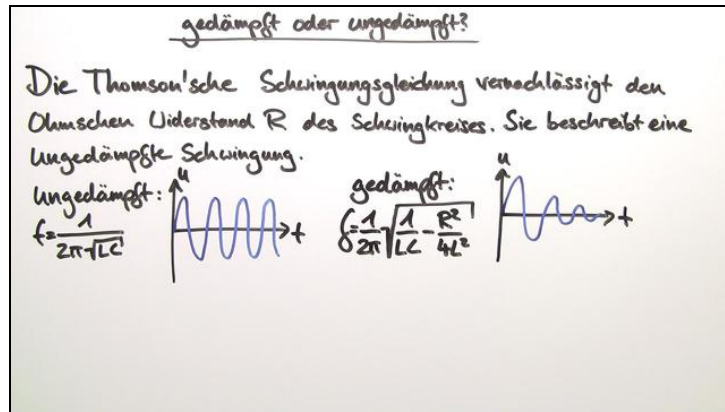 gedämpft oder ungedämpft?
Die Thomson'sche Schwingungsgleichung vernachlässigt den
Ohmschen Widerstand R des Schwingkreises. Sie beschreibt eine
ungedämpfte Schwingung.
ungedämpft: u gedämpft: u
f=1/(2π√LC) t f=1/2π √(1/LC - R²/4L²) t